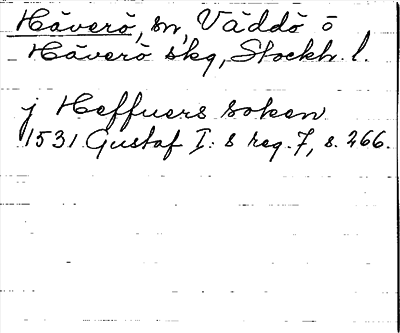 Häverö, sn, Väddö ö
Häverö skg, Stockh. l.
j Heffuers soken
1531 Gustaf I:s reg. 7, s. 266.